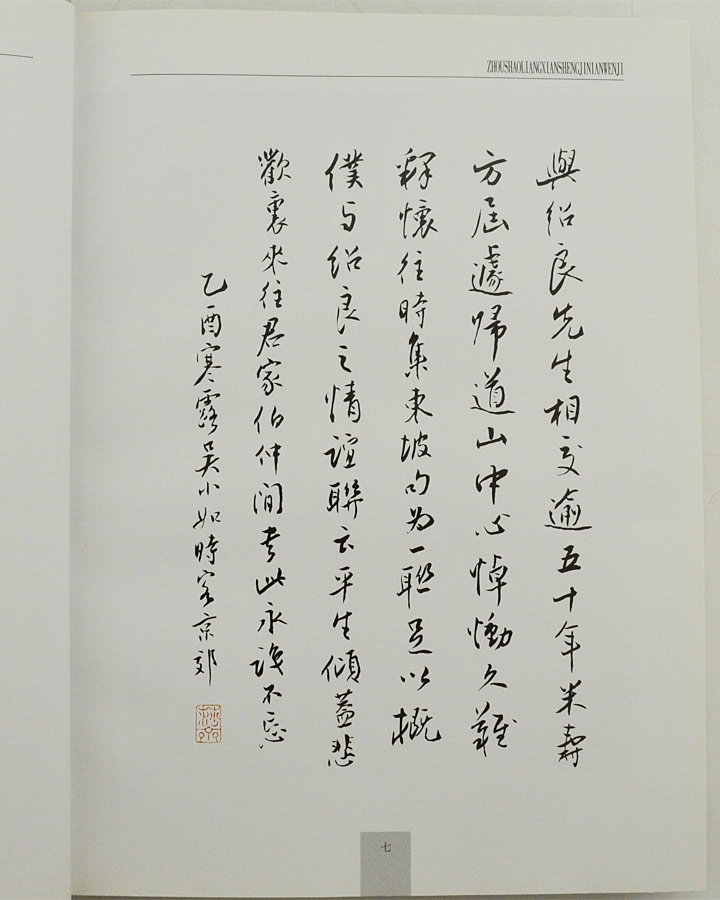 ZHOUSHAOLIANGXIANSHENGJINIANWENJI
與紹良先生相交逾五十年米壽
方屆遽歸道山中心悼慟久難
釋懷往時集東坡句为一聯足以概
僕与紹良之情誼聯云平生傾蓋悲
歡裏來往君家伯仲間書此永識不忘
乙酉寒露吳小如時客京郊
七